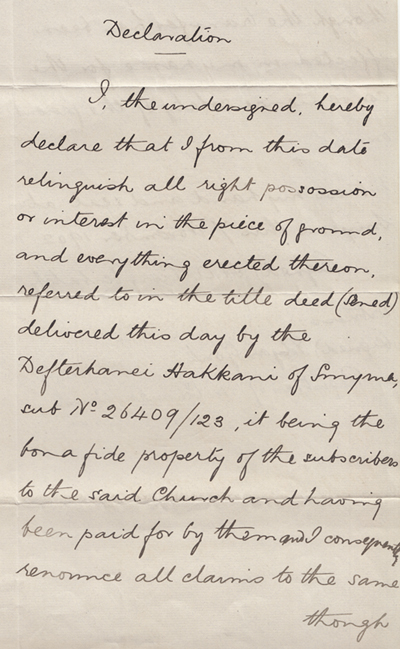 Declaration
I, the undersigned, hereby
declare that I from this date
relinquish all right possossion
or interest in the piece of ground,
and everything erected thereon,
referred to in the title deed (sened)
delivered this day by the
Defterhanei Hakkani of Smyrna,
sub No 26409/123, it being the
bona fide property of the subscribers
to the said Church and having
been paid for by them and I consequently
renounce all claims to the same
though